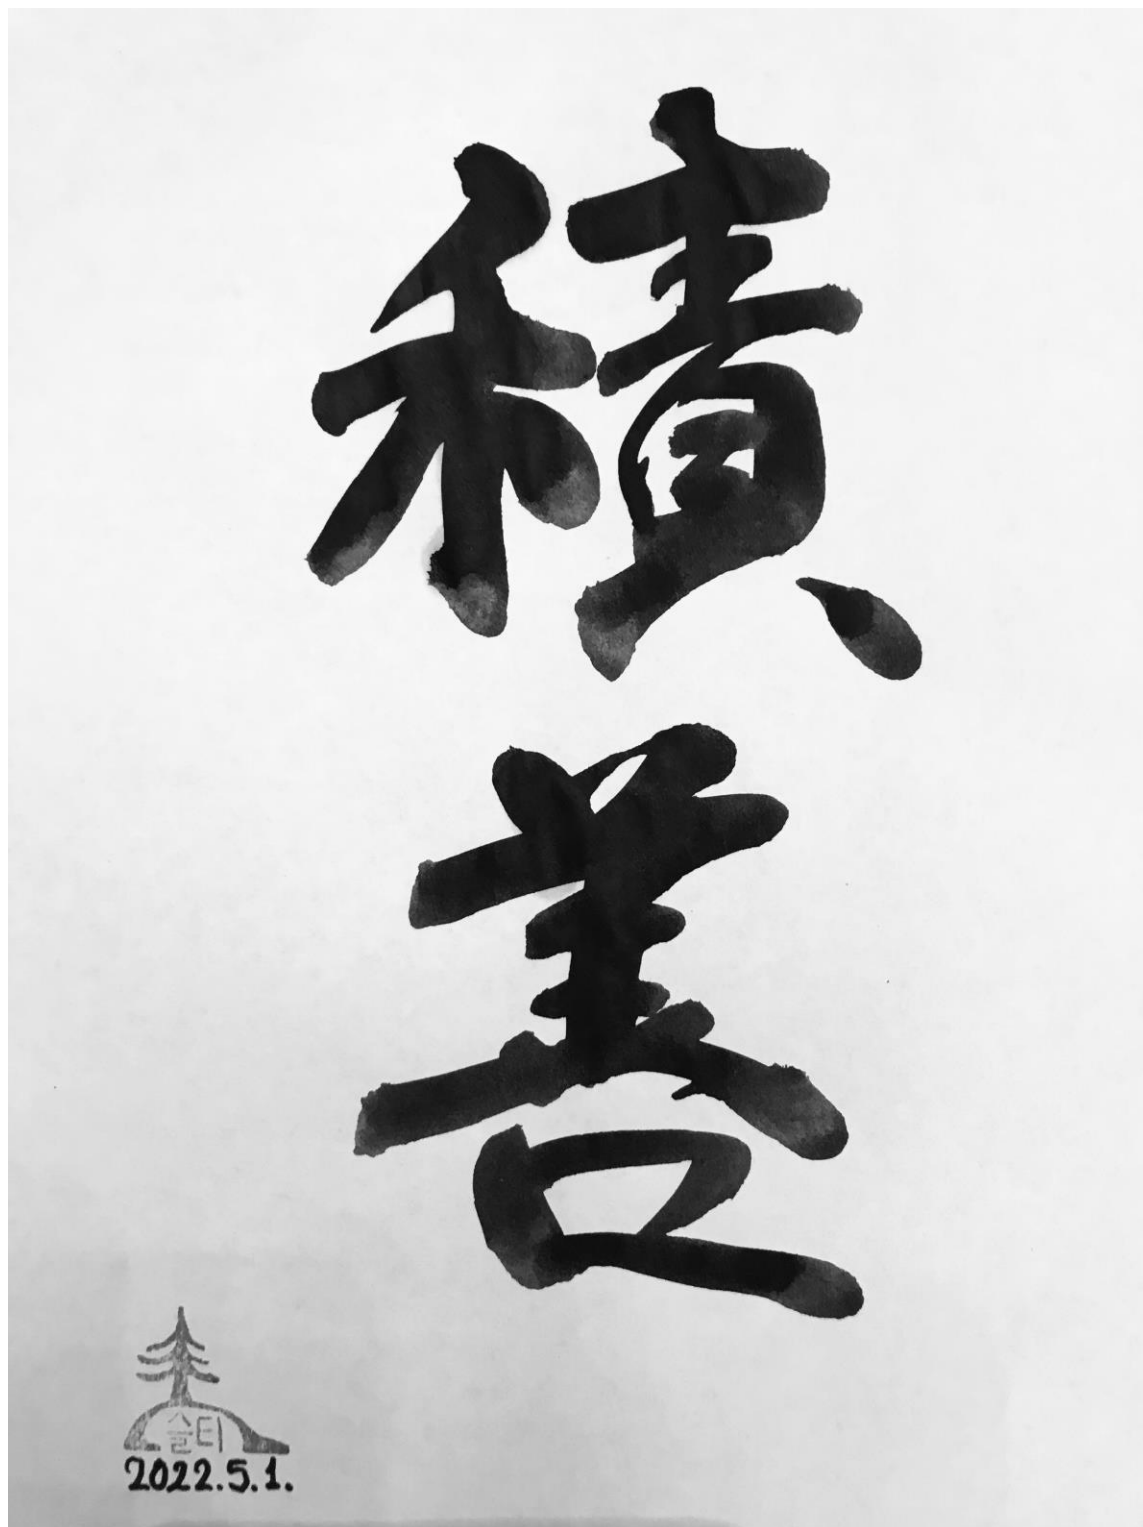 積
善
솔티
2022.5.1.